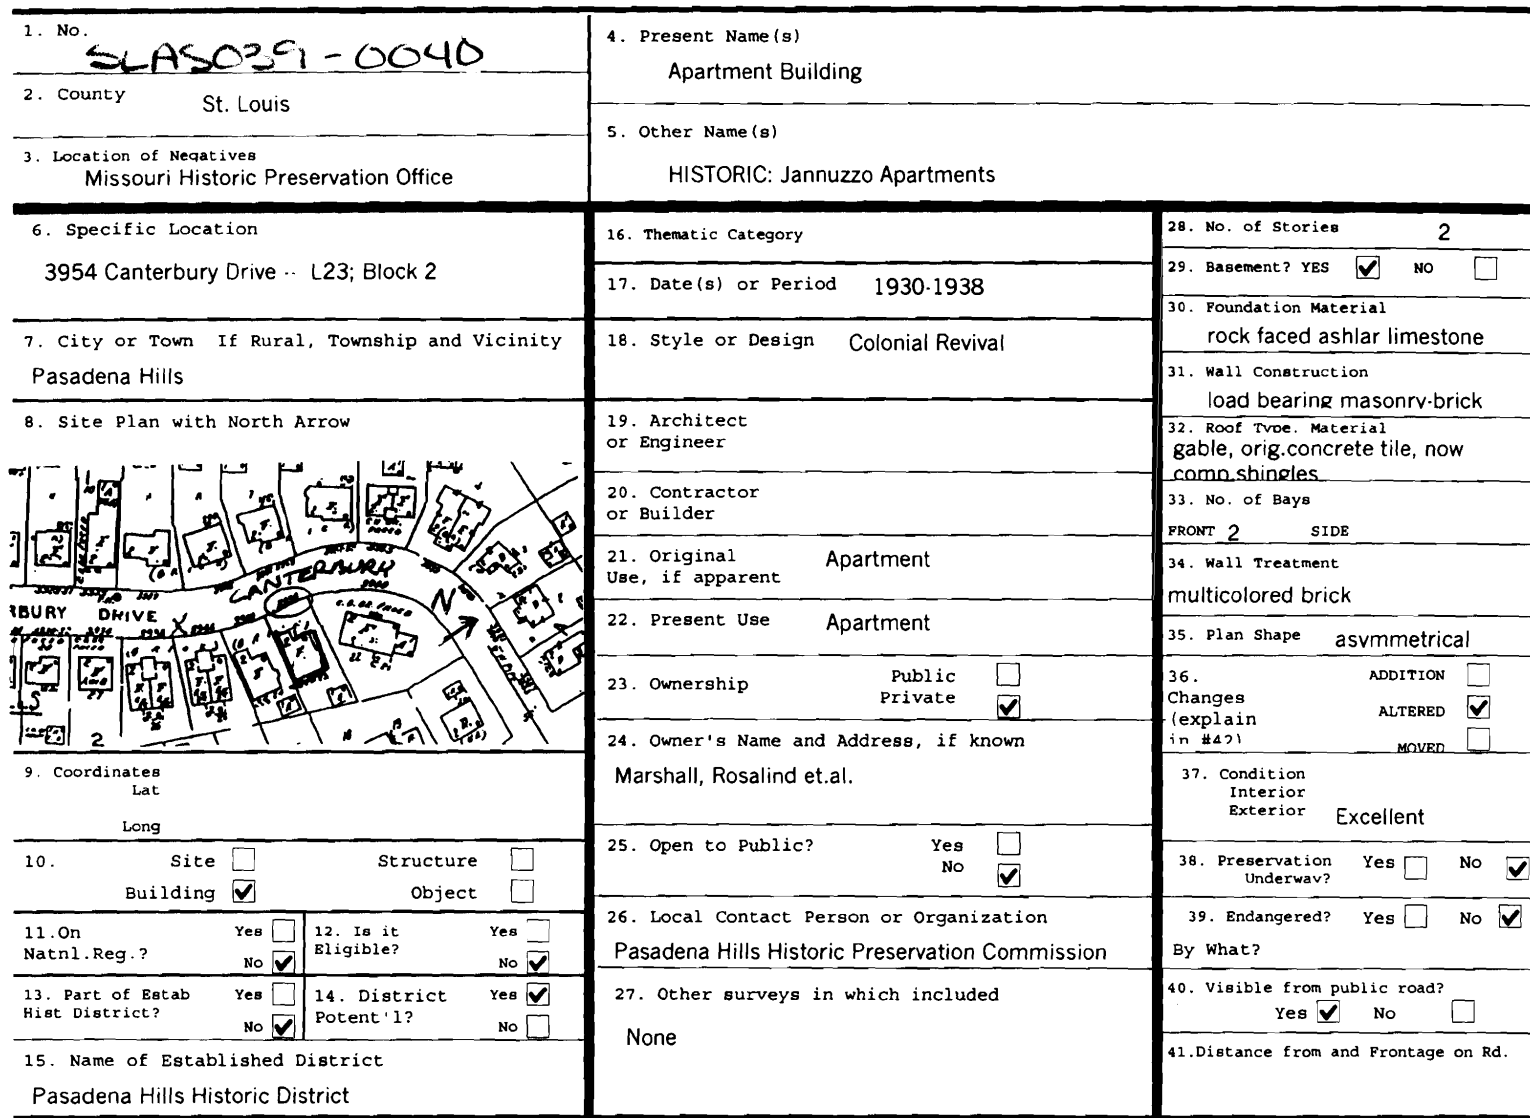 1. No.
SLAS039-0040
2. County
St. Louis
3. Location of Negatives
Missouri Historic Preservation Office
4. Present Name(s)
Apartment Building
5. Other Name(s)
HISTORIC: Jannuzzo Apartments
6. Specific Location
3954 Canterbury Drive -- L23; Block 2
7. City or Town If Rural, Township and Vicinity
Pasadena Hills
8. Site Plan with North Arrow
CANTERBURY
RBURY DRIVE
N
2
9. Coordinates
Lat
Long
10. Site Structure
Building ✔ Object
11.On Yes
Natnl.Reg.? No ✔
12. Is it Yes
Eligible? No ✔
13. Part of Estab Yes
Hist District? No ✔
14. District Yes ✔
Potent'l? No
15. Name of Established District
Pasadena Hills Historic District
16. Thematic Category
17. Date(s) or Period 1930-1938
18. Style or Design Colonial Revival
19. Architect
or Engineer
20. Contractor
or Builder
21. Original Apartment
Use, if apparent
22. Present Use Apartment
23. Ownership Public
Private ✔
24. Owner's Name and Address, if known
Marshall, Rosalind et.al.
25. Open to Public? Yes
No ✔
26. Local Contact Person or Organization
Pasadena Hills Historic Preservation Commission
27. Other surveys in which included
None
28. No. of Stories 2
29. Basement? YES ✔ NO
30. Foundation Material
rock faced ashlar limestone
31. Wall Construction
load bearing masonry-brick
32. Roof Type. Material
gable, orig.concrete tile, now
comp.shingles
33. No. of Bays
FRONT 2 SIDE
34. Wall Treatment
multicolored brick
35. Plan Shape asymmetrical
36. ADDITION
Changes
(explain ALTERED ✔
in #42)
MOVED
37. Condition
Interior
Exterior Excellent
38. Preservation Yes No ✔
Underway?
39. Endangered? Yes No ✔
By What?
40. Visible from public road?
Yes ✔ No
41.Distance from and Frontage on Rd.